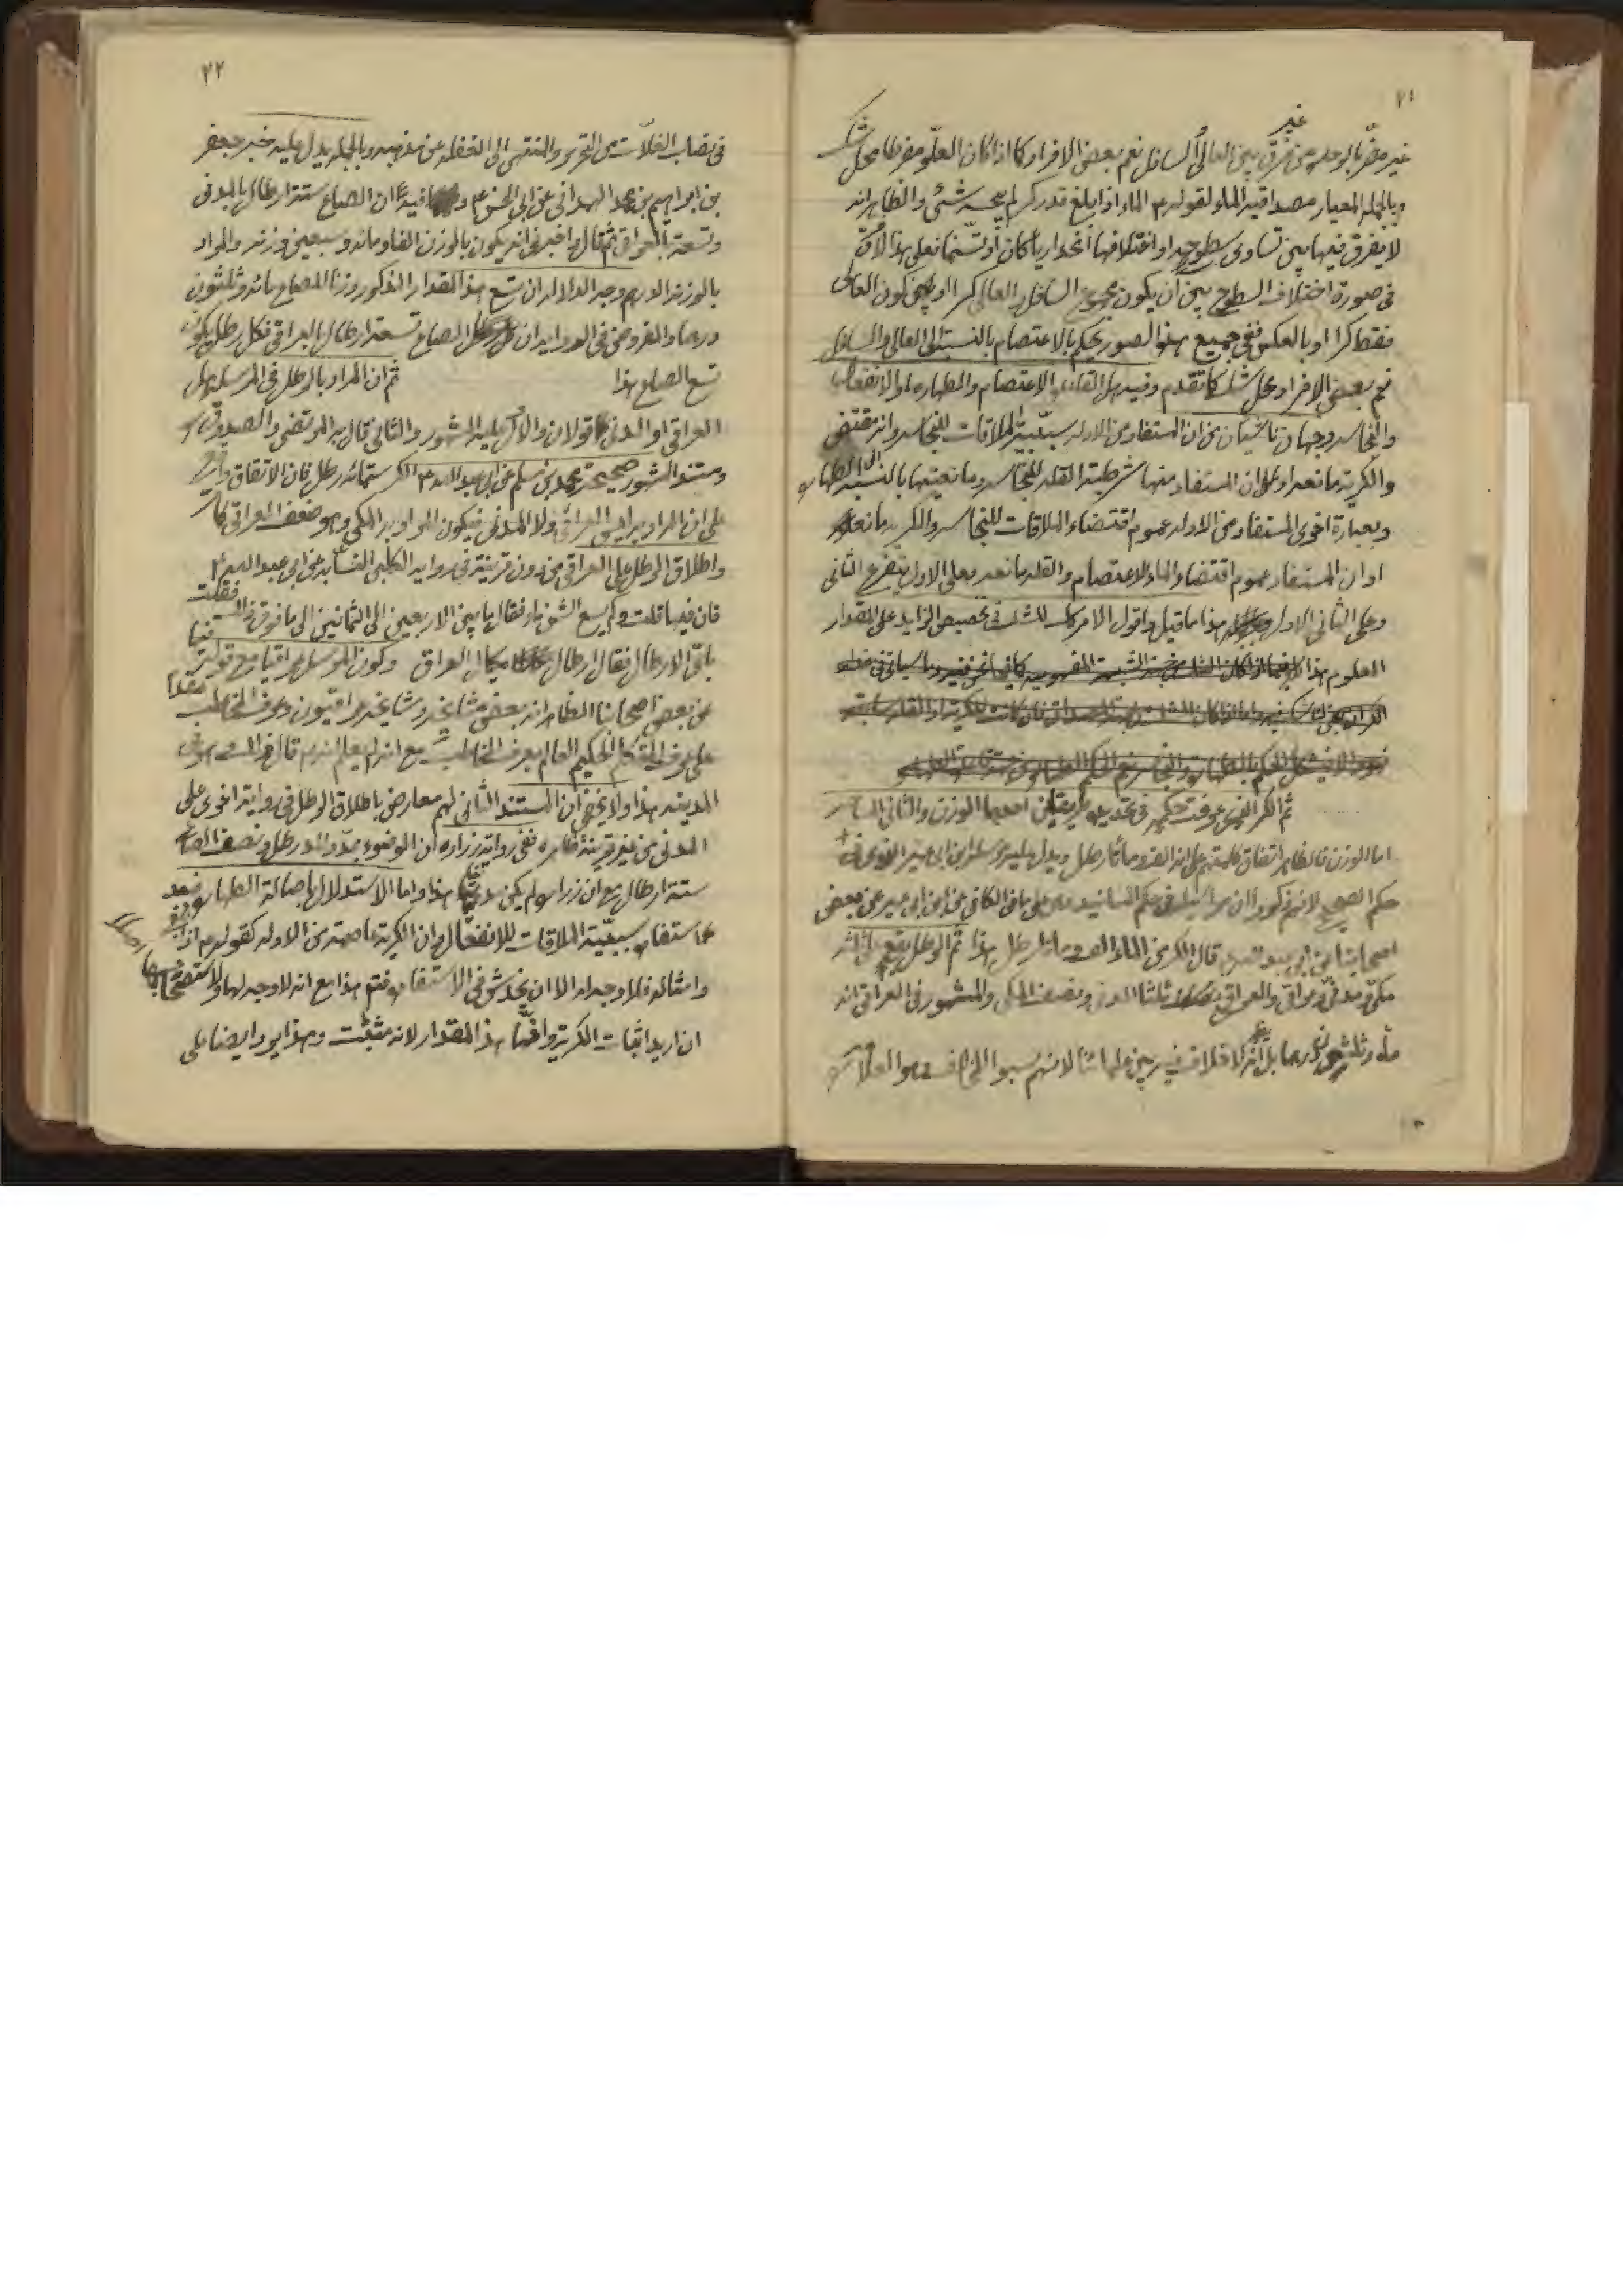 ٢١
غير مضر بالوحدة من غير فرق بين العالى والسافل نعم بعض الافراد كما اذا كان العلو مفرطا محل شك
وبالجملة المعيار مصداقية الماء لقوله ع الماء اذا بلغ قدر كر لم ينجسه شئ والظاهر انه
لا يفرق فيها بين تساوى سطوحه او اختلافها انحداريا كان او تسنما نعم على هذا لا فرق
فى صورة اختلاف السطوح بين ان يكون مجموع السافل والعالى كرا او بين كون العالى
فقط كرا او بالعكس ففى جميع هذه الصور يحكم بالاعتصام بالنسبة الى العالى والسافل
نعم بعض الافراد محل شك كما تقدم وفيه هل القاعدة الاعتصام والطهارة او الانفعال
والنجاسة وجهان ناشيان من ان المستفاد من الادلة سببية الملاقات للنجاسة وانه مقتضى
والكرية مانعة او على ان المستفاد منها شرطية القلة للنجاسة ومانعيتها بالنسبة الى الطهارة
وبعبارة اخرى المستفاد من الادلة عموم اقتضاء الملاقات للنجاسة والكرية مانعة
او ان المستفاد عموم اقتضاء الماء للاعتصام والقلة مانعة فعلى الاول يتفرع الثانى
وعلى الثانى الاول هذا ما قيل واقول الامر كك للشك فى تخصيص الزايد على المقدار
المعلوم هذا
ثم الكر الذى عرفت حكمه فى تحديده طريقين احدهما الوزن والثانى المساحة
اما الوزن فالظاهر اتفاق كلمتهم على انه الف ومأتا رطل ويدل عليه مرسلة ابن ابى عمير الذى فى
حكم الصحيح لانهم ذكروا ان مراسيله فى حكم المسانيد على ما فى الكافى عن ابن ابى عمير عن بعض
اصحابنا عن ابى عبد الله ع قال الكر من الماء الف ومأتا رطل هذا ثم الرطل يقع على ثلثة
مكى ومدنى وعراقى والعراقى ثلثا المدنى ونصف المكى والمشهور فى العراقى انه
مأة وثلثون درهما بل لا خلاف فيه بين علمائنا لانهم نسبوا الخلاف هو العلامة
٢٢
فى نصاب الغلات من التحرير والمنتهى الى الغفلة عن مذهبه وبالجملة يدل عليه خبر جعفر
بن ابراهيم بن محمد الهمدانى عن ابى الحسن ع فيه ان الصاع ستة ارطال بالمدنى
وتسعة بالعراقى ثم قال واخبرنى انه يكون بالوزن الفا ومائة وسبعين وزنة والمراد
بالوزنة الدرهم وجه الدلالة ان تسع هذا المقدار المذكور وزنا للصاع مائة وثلثون
درهما والمفروض فى الرواية ان الصاع تسعة ارطال بالعراقى فكل رطل يكون
تسع الصاع هذا ثم ان المراد بالرطل فى المرسلة هل
العراقى او المدنى قولان والاول عليه المشهور والثانى قال به المرتضى والصدوق
ومستند المشهور صحيحة محمد بن مسلم عن ابى عبد الله ع الكر ستمائة رطل فان الاتفاق واقع
على ان المراد به ليس العراقى ولا المدنى فيكون المراد به المكى وهو ضعف العراقى
واطلاق الرطل على العراقى من دون قرينة فى رواية الكلبى النسابة عن ابى عبد الله ع
فان فيها قلت وكم يسع الشن ماء فقال ما بين الاربعين الى الثمانين الى ما فوق ذلك فقلت
باى الارطال فقال ارطال مكيال العراق وكون المرسل عراقيا مع قوله
عن بعض اصحابنا الظاهر انه بعض مشايخه ومشايخه عراقيون وعرف المخاطب مقدم
على عرف المتكلم الحكيم العالم بعرف المخاطب مع انه لم يعلم انه ع قال ذلك فى
المدينة هذا ولا يخفى ان المستند الثانى لهم معارض باطلاق الرطل فى رواية اخرى على
المدنى من غير قرينة ظاهرة ففى رواية زرارة ان الوضوء بمد والمد رطل ونصف والصاع
ستة ارطال مع ان زرارة لم يكن مدنيا هذا واما الاستدلال باصالة الطهارة فبعد
استفادة سببية الملاقات للانفعال وان الكرية عاصمة من الادلة كقوله ع اذا
وامثاله فلا وجه له الا ان يخدش فى الاستفادة فتم هذا مع انه لا وجه لها ولاستصحابها اصلا
ان اريد اثبات الكرية وانها هذا المقدار لانه مثبت وهذا يرد ايضا على